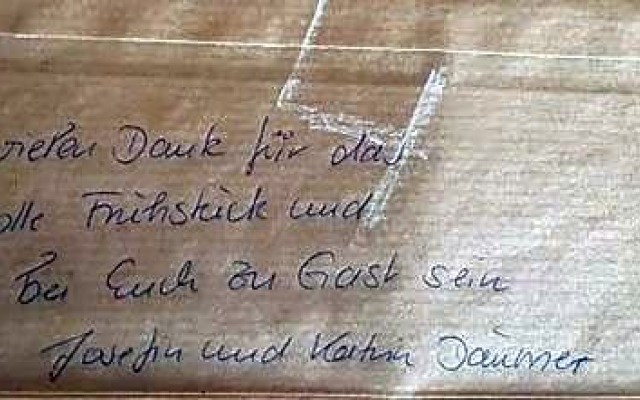 vielen Dank für das
olle Frühstück und
bei Euch zu Gast sein
Josefin und Katrin Däumer